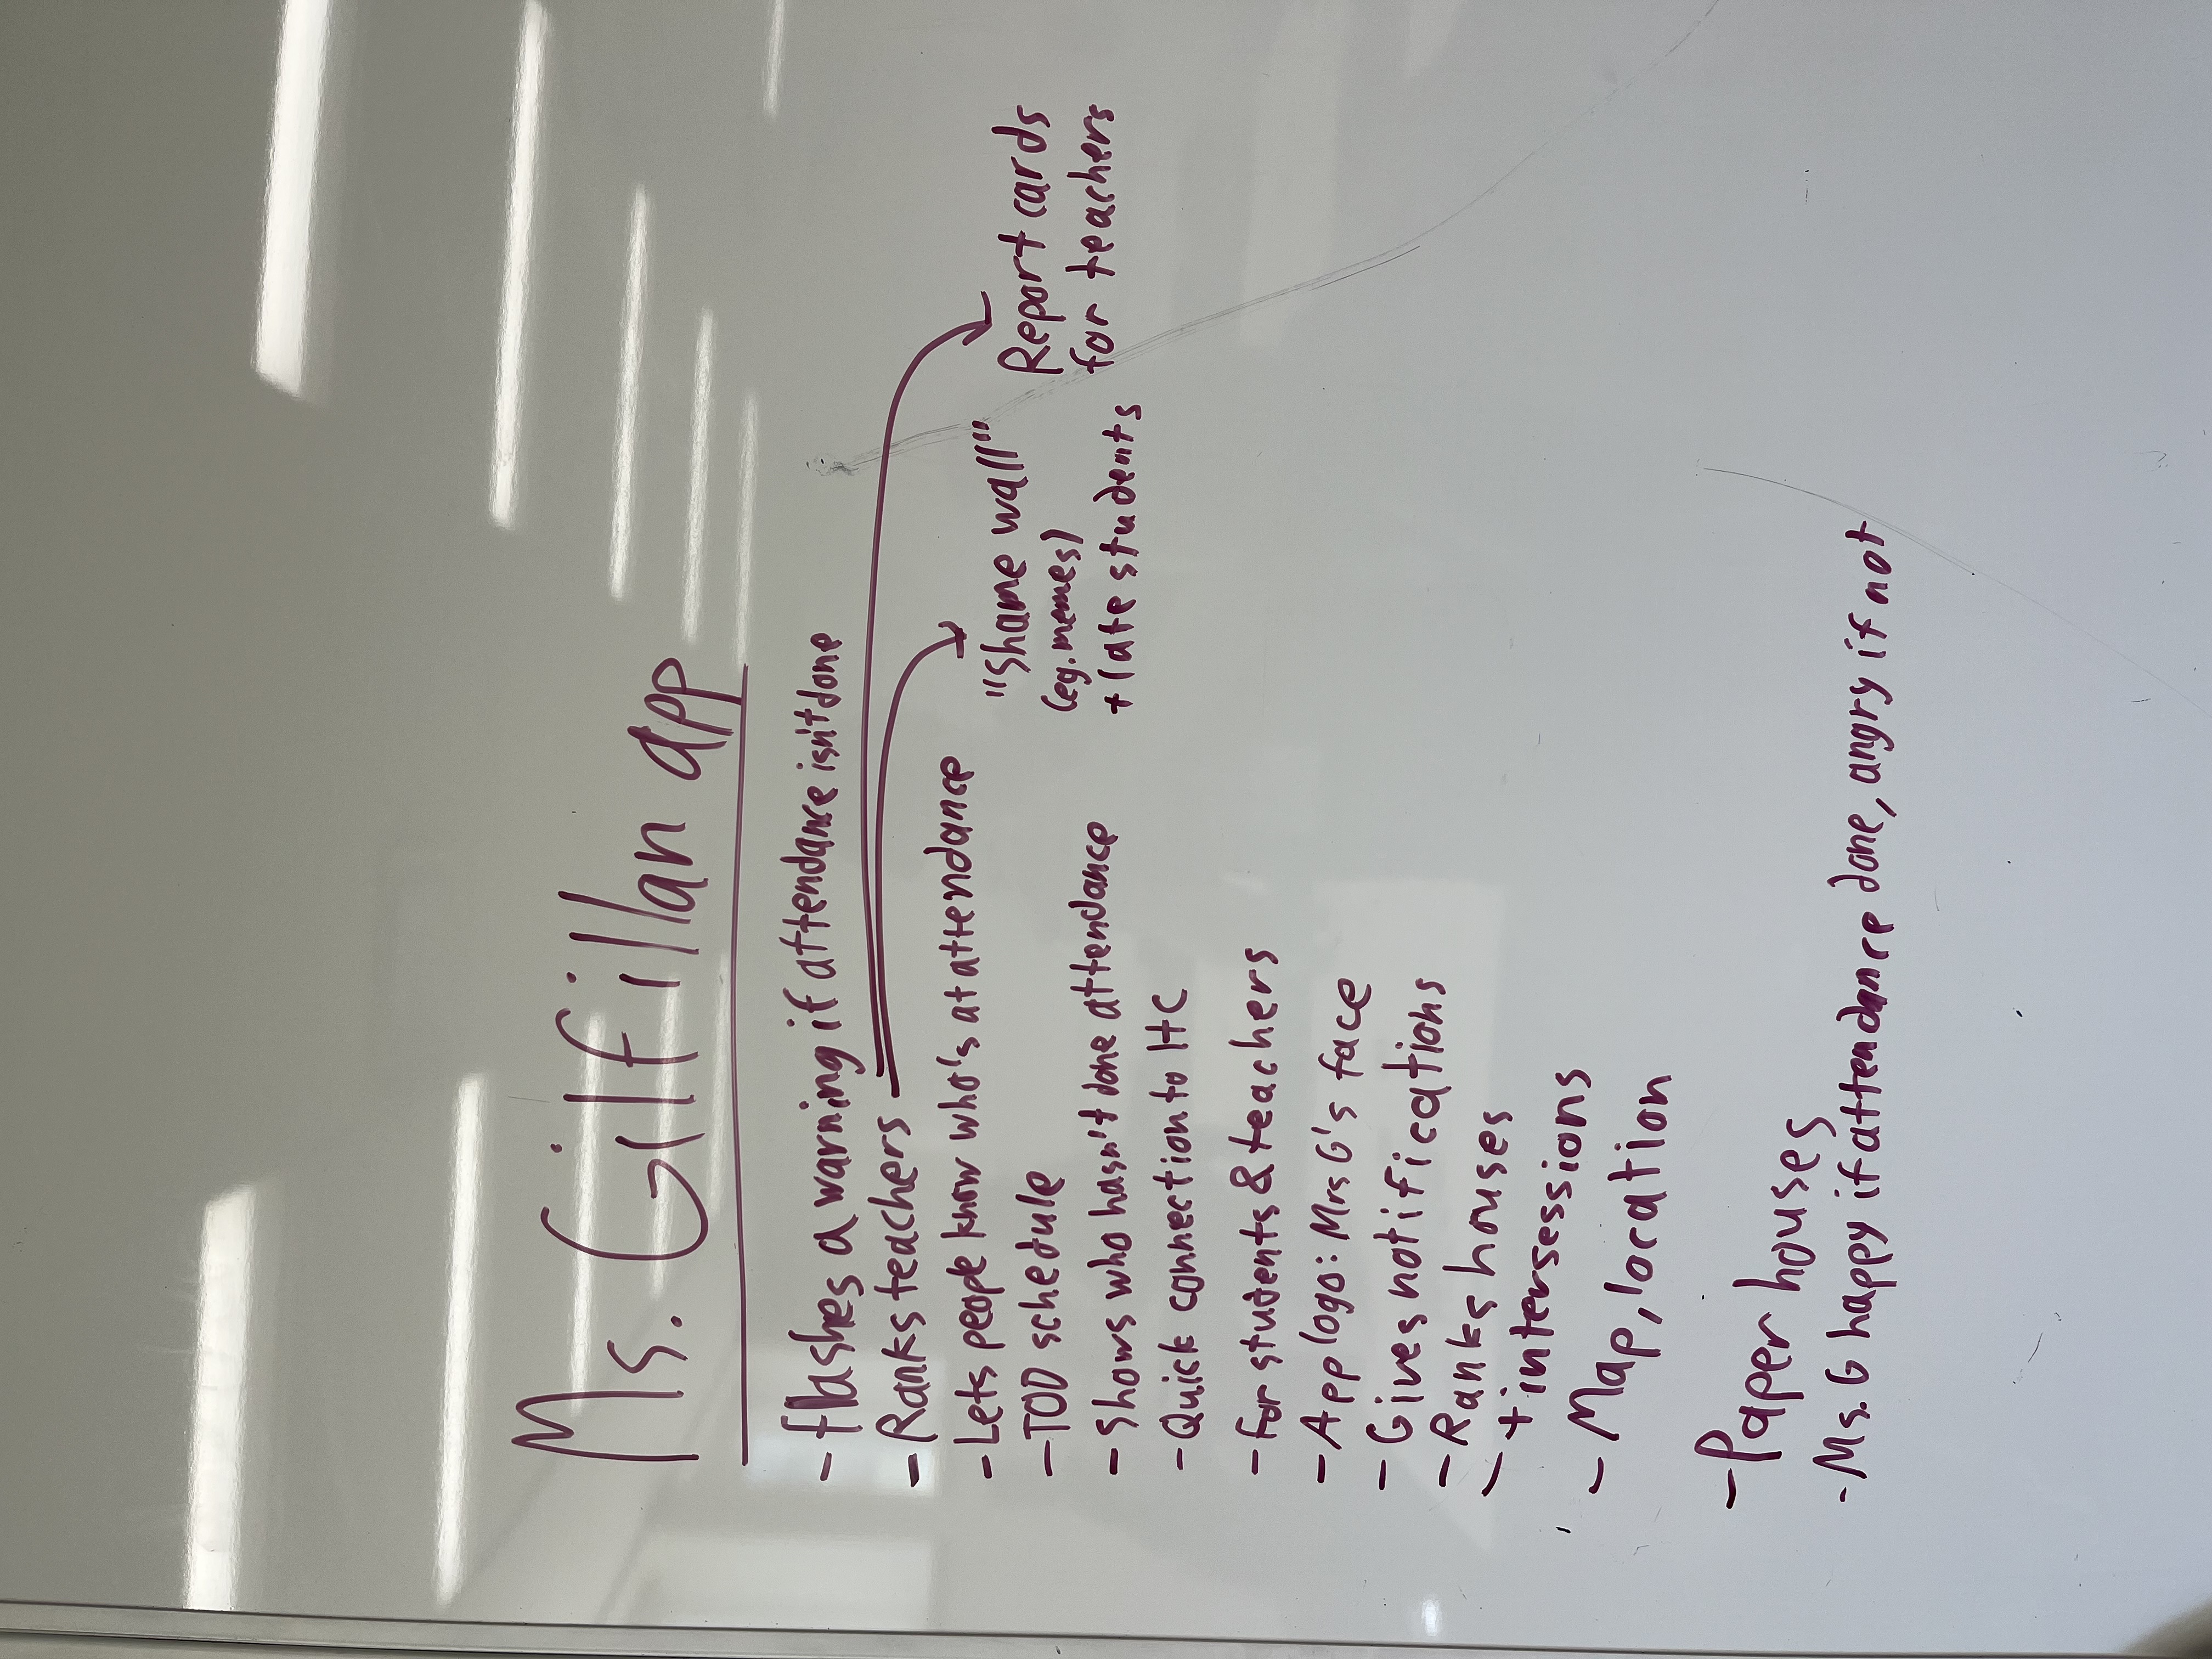 Ms. Gilfillan app
- flashes a warning if attendance isn't done
- Ranks teachers
"Shame wall"
(eg. memes)
+ late students
Report cards
for teachers
- Lets people know who's at attendance
- TOD schedule
- Shows who hasn't done attendance
- Quick connection to HC
- For students & teachers
- App logo: Mrs G's face
- Gives notifications
- Ranks houses
- + intersessions
- Map, location
- Paper houses
- Ms. G happy if attendance done, angry if not